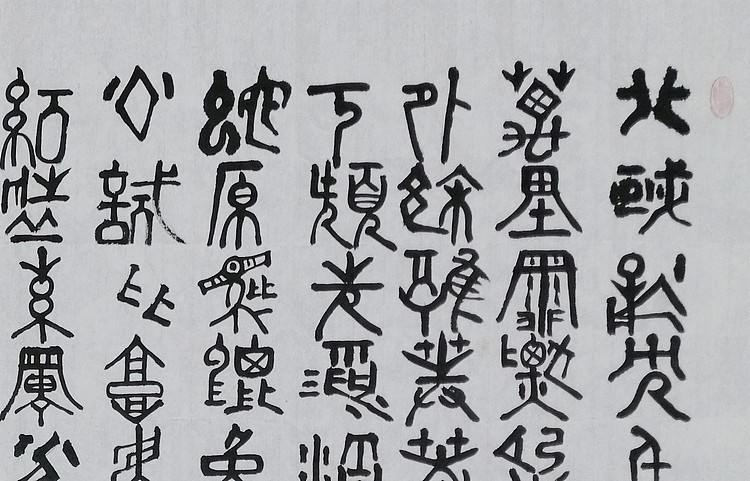 北國風光千
萬里雪飄望
外餘莽莽
下頓失滔滔
蛇原馳蠟象
公試比高須
紅裝素裹分